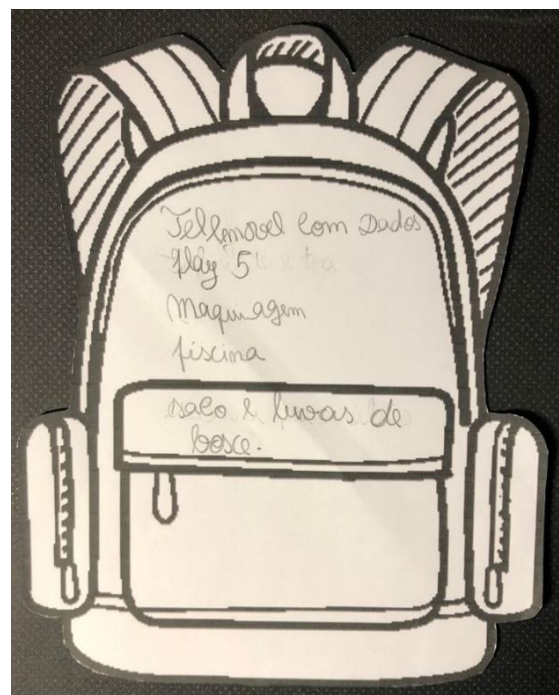 Tellmovel com Dados
Play 5
Maquiagem
piscina
saco e luvas de
bosce.